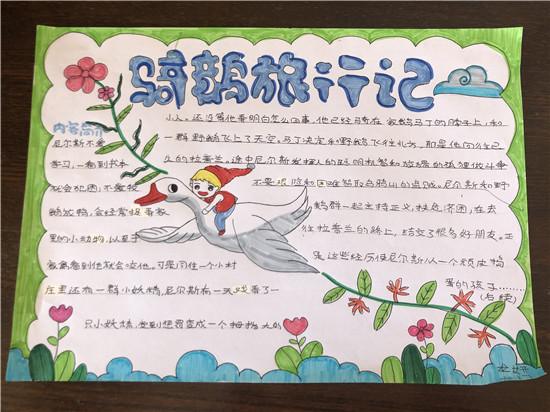 骑鹅旅行记
内容简介
尼尔斯不爱
学习,一看到书本
就会犯困,不爱放
鹅放鸭,会经常捉弄家
里的小动物,以至于
家禽看到他就会咬他。可是同住一个小村
庄里还有一群小妖精,尼尔斯有一天戏弄了一
只小妖精,受到惩罚变成一个拇指大的
小人。还没等他弄明白怎么回事,他已经骑在家鹅马丁的脖子上,和
一群野鹅飞上了天空。马丁决定和野鹅飞往北方,那是他向往已
久的拉普兰。途中尼尔斯发挥人的聪明机智和狡猾的狐狸作斗争
不畏艰险和困难
尔斯和野
鹅群一起主持正义,扶危济困,在去
往拉普兰的路上,结交了很多好朋友。正
是这些经历使尼尔斯从一个顽皮捣
蛋的孩子……
(后续)